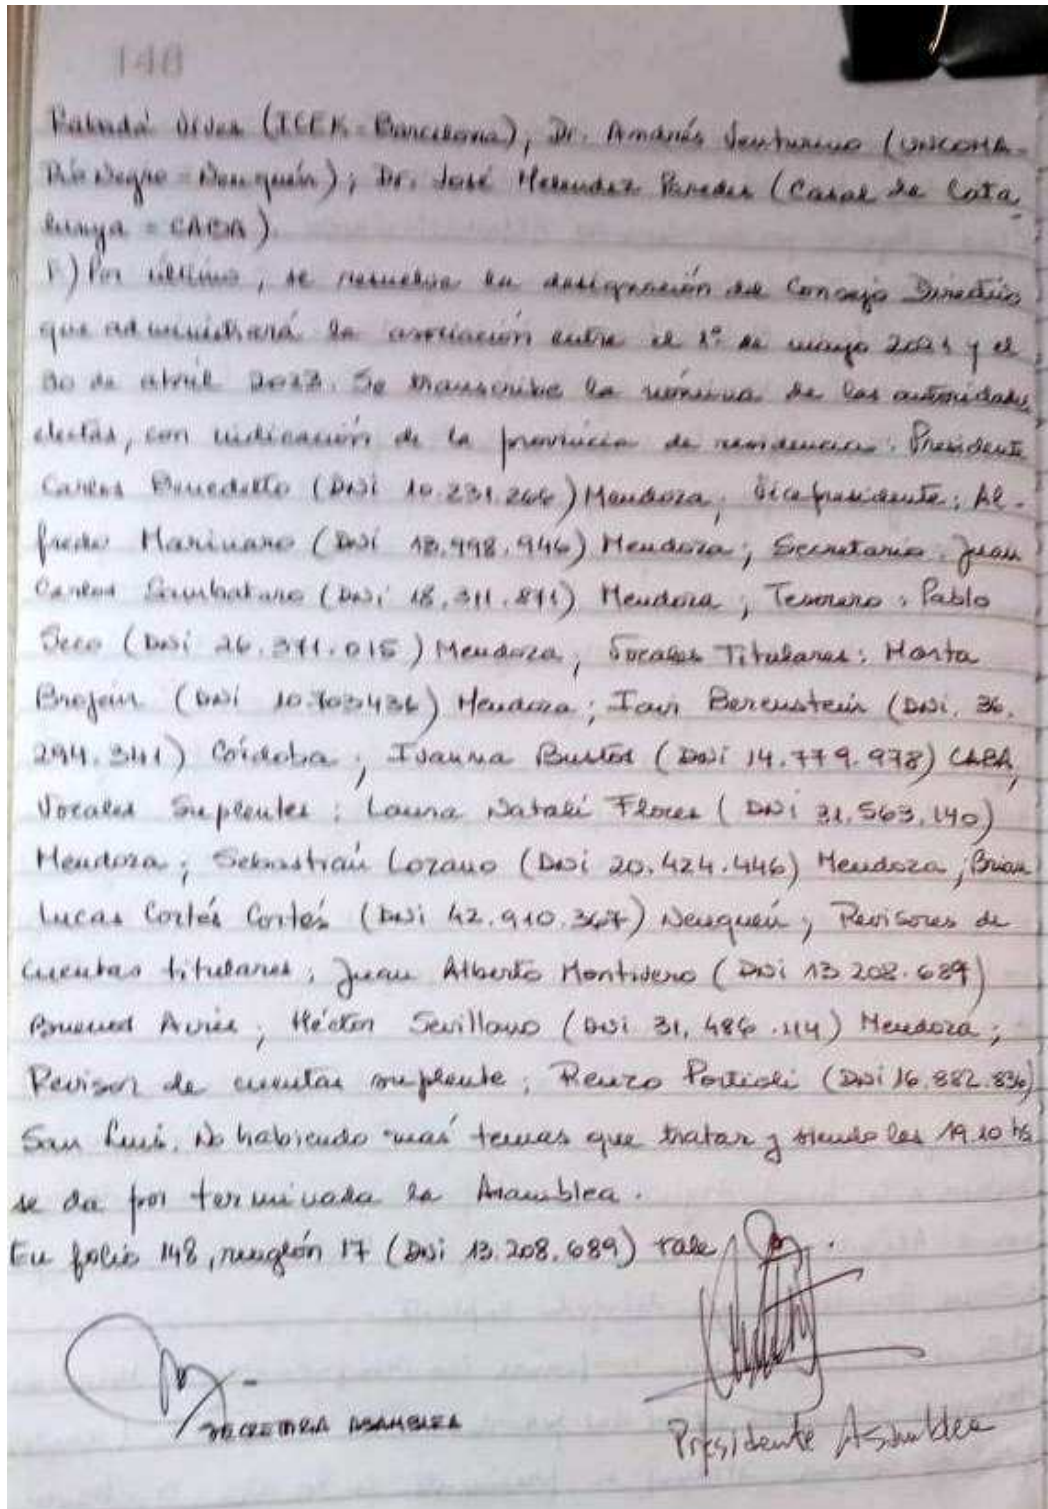 148
Rabadá Vives (ICEK - Barcelona), Dr. Andrés Venturino (UNCOMA -
Río Negro - Neuquén); Dr. José Melendez Paredes (Casal de Cata
lunya - CABA).
F) Por último, se resuelve la designación del Consejo Directivo
que administrará la asociación entre el 1º de mayo 2021 y el
30 de abril 2023. Se transcribe la nómina de las autoridades
electas, con indicación de la provincia de residencia: Presidente
Carlos Benedetto (DNI 10.231.266) Mendoza; Vicepresidente: Al-
fredo Marinaro (DNI 18.998.946) Mendoza; Secretario: Juan
Carlos Sambataro (DNI 18.311.811) Mendoza; Tesorero: Pablo
Seco (DNI 26.371.015) Mendoza; Vocales Titulares: Marta
Brojan (DNI 10.703436) Mendoza; Iaur Berenstein (DNI. 36.
294.341) Córdoba; Ivanna Bustos (DNI 14.779.978) CABA,
Vocales Suplentes: Laura Natalí Flores (DNI 31.563.140)
Mendoza; Sebastián Lozano (DNI 20.424.446) Mendoza; Brian
Lucas Cortés Cortés (DNI 42.910.367) Neuquén; Revisores de
cuentas titulares; Juan Alberto Montivero (DNI 13 208.689)
Buenos Aires; Héctor Sevillano (DNI 31,486.114) Mendoza;
Revisor de cuentas suplente; Renzo Portioli (DNI 16.882.836)
San Luis. No habiendo más temas que tratar y siendo las 19.10 hs
se da por terminada la Asamblea.
En folio 148, renglón 17 (DNI 13.208.689) vale.
SECRETARIA ASAMBLEA
Presidente Asamblea